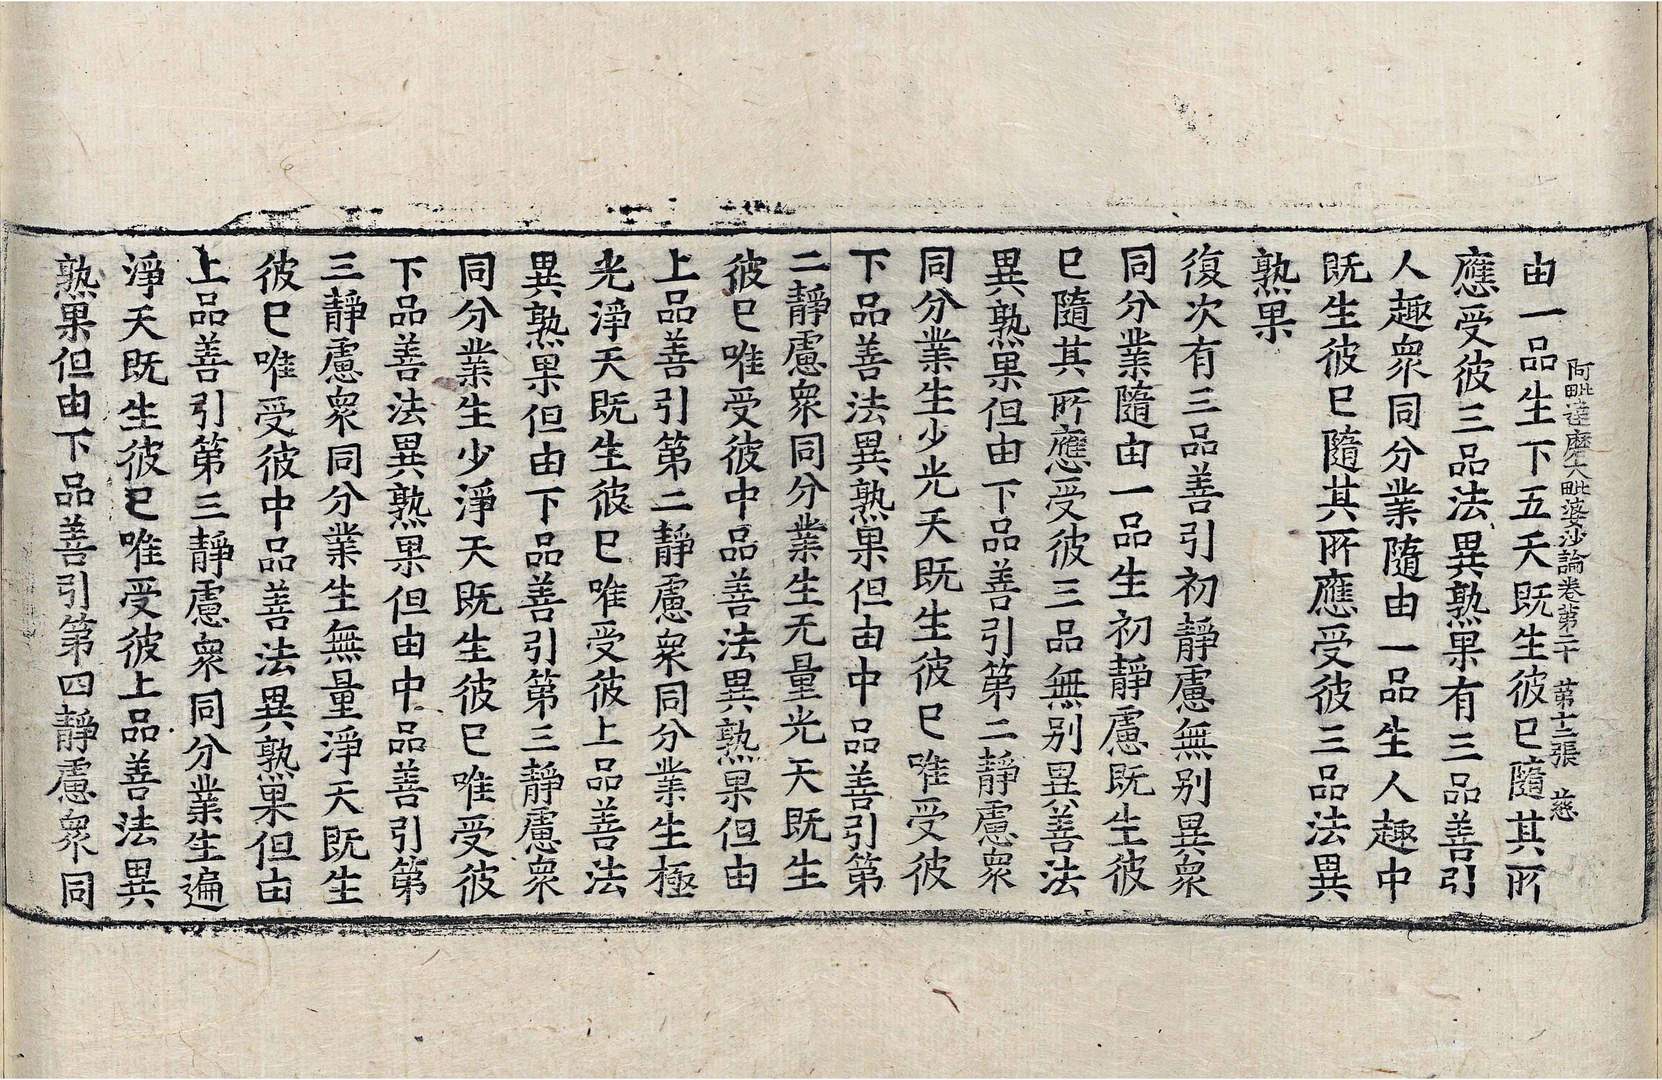 阿毗達磨大毗婆沙論卷第二十　第十二張　慈
由一品生下五天既生彼已隨其所
應受彼三品法異熟果有三品善引
人趣衆同分業隨由一品生人趣中
既生彼已隨其所應受彼三品法異
熟果
復次有三品善引初靜慮無别異衆
同分業隨由一品生初靜慮既生彼
已隨其所應受彼三品無别異善法
異熟果但由下品善引第二靜慮衆
同分業生少光天既生彼已唯受彼
下品善法異熟果但由中品善引第
二靜慮衆同分業生无量光天既生
彼已唯受彼中品善法異熟果但由
上品善引第二靜慮衆同分業生極
光淨天既生彼已唯受彼上品善法
異熟果但由下品善引第三靜慮衆
同分業生少淨天既生彼已唯受彼
下品善法異熟果但由中品善引第
三靜慮衆同分業生無量淨天既生
彼已唯受彼中品善法異熟果但由
上品善引第三靜慮衆同分業生遍
淨天既生彼已唯受彼上品善法異
熟果但由下品善引第四靜慮衆同